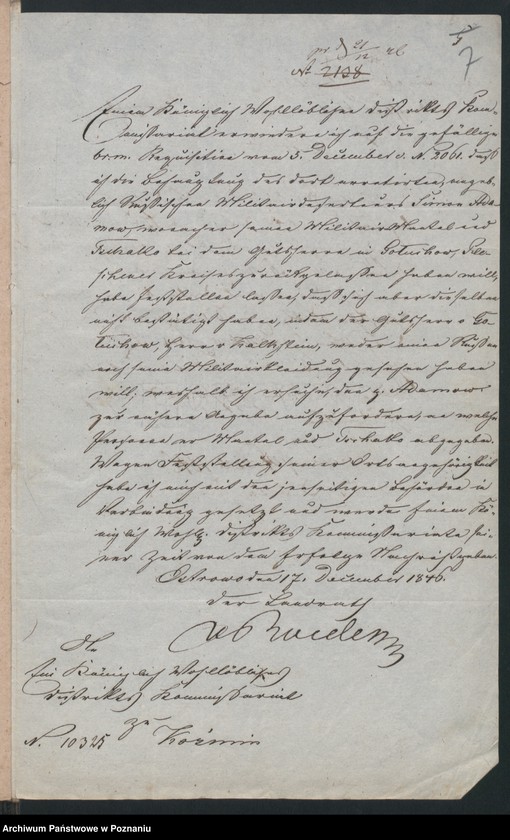 5
7
pr. d 21/12 46
No 2138
Einem Königlich Wohllöblichen Distrikts Kom-
missariat erwiedere ich auf die gefällige
Requisition vom 5. December c. N. 2061. daß
ich die Behauptung des dort arretirten, angeb-
lich Russischen Militairdeserteurs Simon Ada-
mow, wonach er seinen Militair Mantel und
bei dem Gutsherrn in
Kreises zurückgelassen haben will,
habe feststellen lassen, daß sich aber dieselbe
nicht bestätigt habe, indem der Gutsherr v
Herr v Kalkstein, weder einen Russen
noch seine Militairkleidung gesehen haben
will; weshalb ich ersuche, den p. Adamow
zur nähern Angabe aufzufordern, an welche
Personen er Mantel und abgegeben.
Wegen Feststellung seiner Ortsangehörigkeit
habe ich mich mit den jenseitigen Behörden in
Verbindung gesetzt und werde Einem Kö-
niglich Wohll. Distrikts Kommissariate sei-
ner Zeit von dem Erfolge Nachricht geben.
Ostrowo den 17. December 1846.
Der Landrath
An
Ein Königlich Wohllöbliches
Distrikts Kommissariat
zu Kozmin
N. 10325
Archiwum Państwowe w Poznaniu